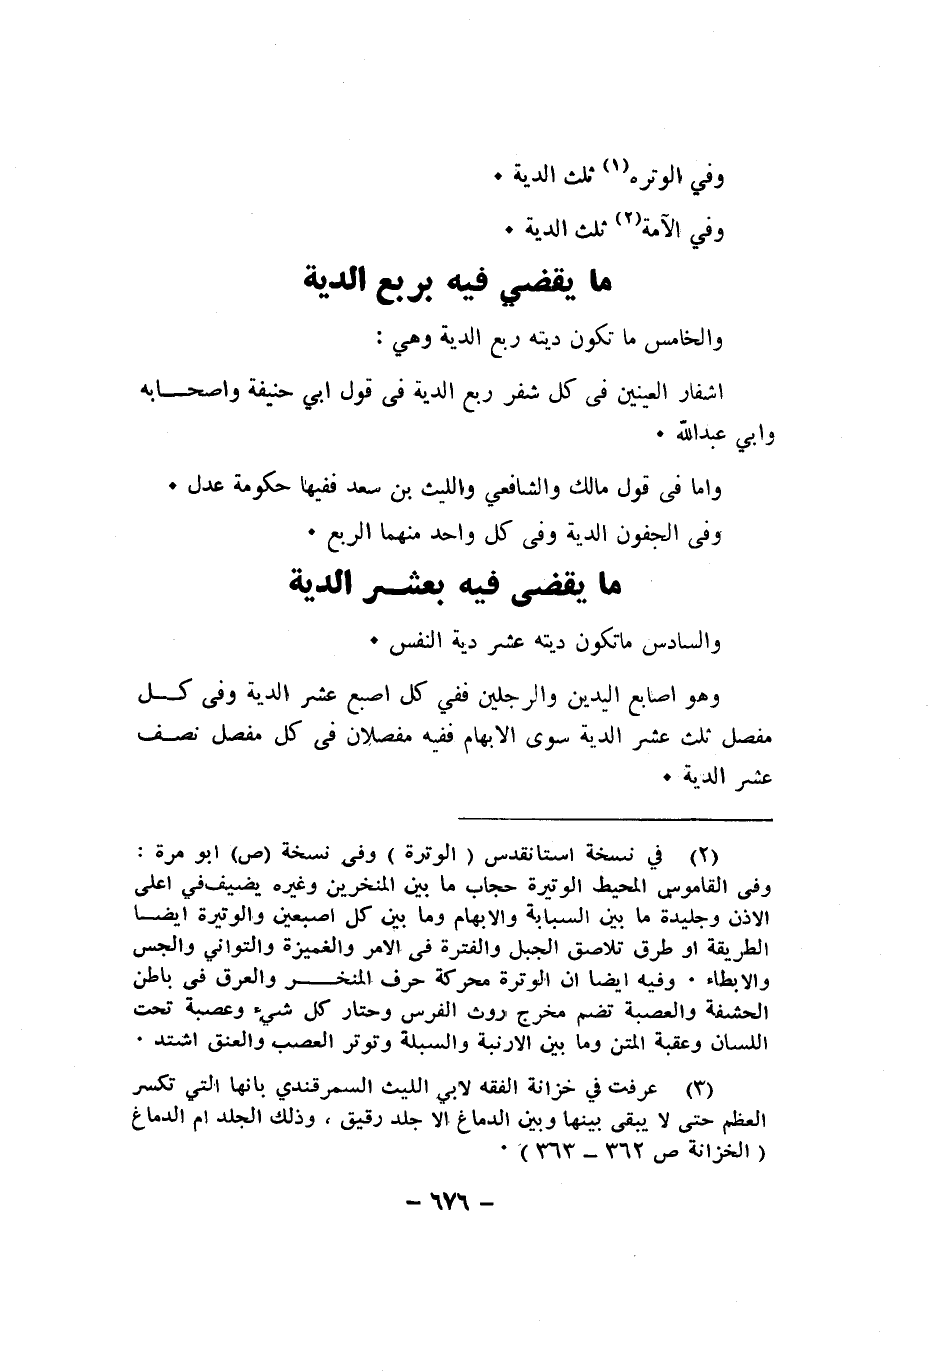 وفي الوتره(١) ثلث الدية ٠
وفي الآمة(٢) ثلث الدية ٠
ما يقضي فيه بربع الدية
والخامس ما تكون ديته ربع الدية وهي :
اشفار العينين فى كل شفر ربع الدية فى قول ابي حنيفة واصحـــابه
وابي عبدالله ٠
واما فى قول مالك والشافعي والليث بن سعد ففيها حكومة عدل ٠
وفى الجفون الدية وفى كل واحد منهما الربع ٠
ما يقضى فيه بعشـــر الدية
والسادس ماتكون ديته عشر دية النفس ٠
وهو اصابع اليدين والرجلين ففي كل اصبع عشر الدية وفى كـــل
مفصل ثلث عشر الدية سوى الابهام ففيه مفصلان فى كل مفصل نصــف
عشر الدية ٠
(٢) في نسخة استانقدس ( الوترة ) وفى نسخة (ص) ابو مرة :
وفى القاموس المحيط الوتيرة حجاب ما بين المنخرين وغيره يضيف‌في اعلى
الاذن وجليدة ما بين السبابة والابهام وما بين كل اصبعين والوتيرة ايضــا
الطريقة او طرق تلاصق الجبل والفترة فى الامر والغميزة والتواني والجس
والابطاء ٠ وفيه ايضا ان الوترة محركة حرف المنخـــــر والعرق فى باطن
الحشفة والعصبة تضم مخرج روث الفرس وحتار كل شيء وعصبة تحت
اللسان وعقبة المتن وما بين الارنبة والسبلة وتوتر العصب والعنق اشتد ٠
(٣) عرفت في خزانة الفقه لابي الليث السمرقندي بانها التي تكسر
العظم حتى لا يبقى بينها وبين الدماغ الا جلد رقيق ، وذلك الجلد ام الدماغ
( الخزانة ص ٣٦٢ – ٣٦٣ ) ٠
– ٦٧٦ –